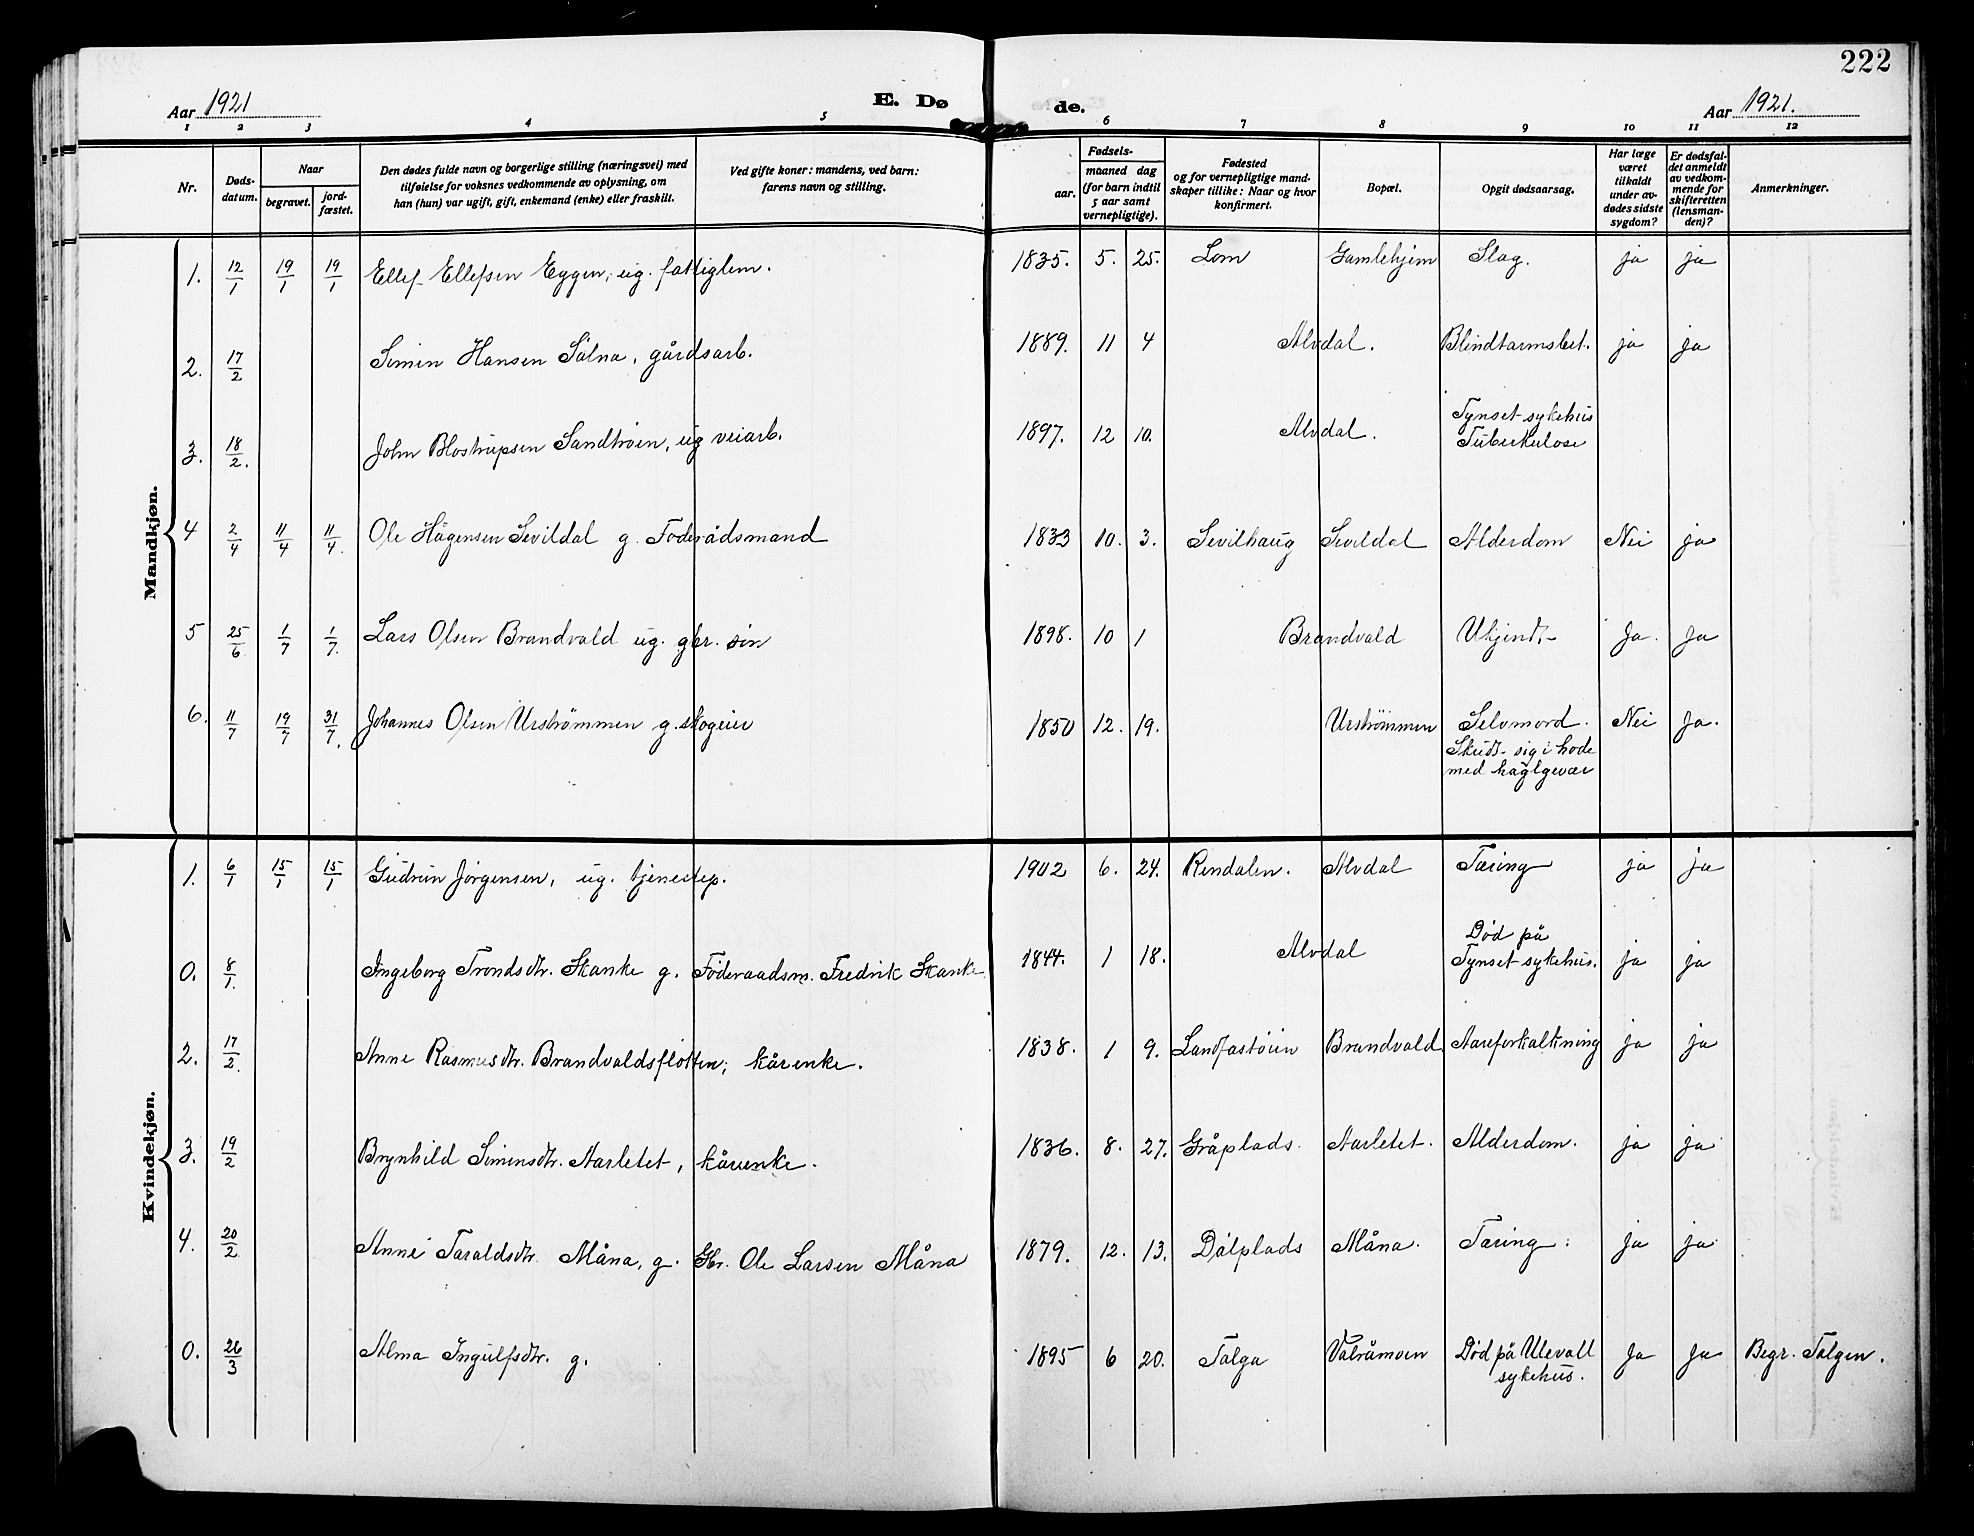 222
Aar 1921 E. Døde. Aar 1921.
1 2 3 4 5 6 7 8 9 10 11 12
Nr. Døds-datum. Naar begravet. jord-fæstet. Den dødes fulde navn og borgerlige stilling (næringsvei) med tilføielse for voksnes vedkommende av oplysning, om han (hun) var ugift, gift, enkemand (enke) eller fraskilt. Ved gifte koner: mandens, ved barn: farens navn og stilling. Fødsels- aar. maaned dag (for barn indtil 5 aar samt vernepligtige). Fødested og for vernepligtige mand-skaper tillike: Naar og hvor konfirmert. Bopæl. Opgit dødsaarsag. Har læge været tilkaldt under av-dødes sidste sygdom? Er dødsfal-det anmeldt av vedkom-mende for skifteretten (lensman-den)? Anmerkninger.
Mandkjøn.
1. 12/1 19/1 19/1 Ellef Ellefsen Eggen, ug. fattiglem. 1835. 5. 25. Lom Gamlehjem Slag. ja ja
2. 17/2 Simen Hansen Sølna, gårdsarb. 1889. 11 4 Alvdal. Blindtarmsbet. ja ja
3. 18/2. John Blostrupsen Sandtrøen, ug veiarb. 1897. 12 10. Alvdal. Tynset sykehus
Tuberkulose
4 2/4 11/4 11/4. Ole Hågensen Sevildal g. Føderådsmand 1833 10. 3. Sevilhaug Sevildal Alderdom Nei ja
5 25/6 1/7 1/7. Lars Olsen Brandvald ug. gbr. søn 1898. 10 1 Brandvald Ukjendt Ja. Ja
6. 11/7 19/7 31/7. Johannes Olsen Urstrømmen g. skogeier 1850 12. 19. Urstrømmen Selvmord. Nei Ja.
Skudt sig i hode
med haglgevær
Kvindekjøn.
1. 6/1 15/1 15/1 Gudrun Jørgensen, ug. tjenestep. 1902 6. 24. Rendalen. Alvdal Tæring ja ja
0. 8/1. Ingeborg Trondsdtr. Skanke g. Føderaadsm. Fredrik Skanke 1844. 1 18. Alvdal Død på
Tynset sykehus. ja ja
2. 17/2. Anne Rasmusdtr. Brandvaldsfløtten, kårenke. 1838. 1 9. Landfastøien Brandvald Aareforkalkning ja ja
3. 19/2 Brynhild Simensdtr. Aarletet, kårenke. 1836. 8. 27. Gråplads. Aarletet. Alderdom. ja ja
4. 20/2. Anne Taraldsdtr. Måna, g. Gbr. Ole Larsen Måna 1879. 12. 13. Dølplads Måna. Tæring. ja ja
0. 26/3 Alma Ingulfsdtr. g. 1895 6 20. Tolga Valråmoen Død på Ulevall
sykehus. Ja Ja Begr. Tolgen.